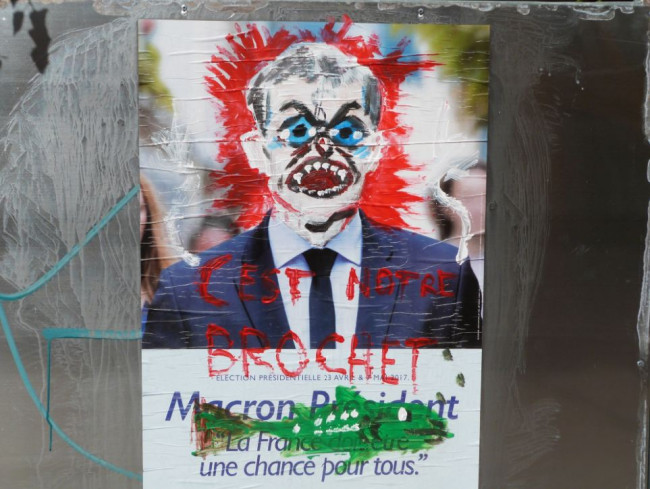 C'EST NOTRE
BROCHET
ÉLECTION PRÉSIDENTIELLE 23 AVRIL & 7 MAI 2017.
Macron Président
"La France doit être
une chance pour tous."